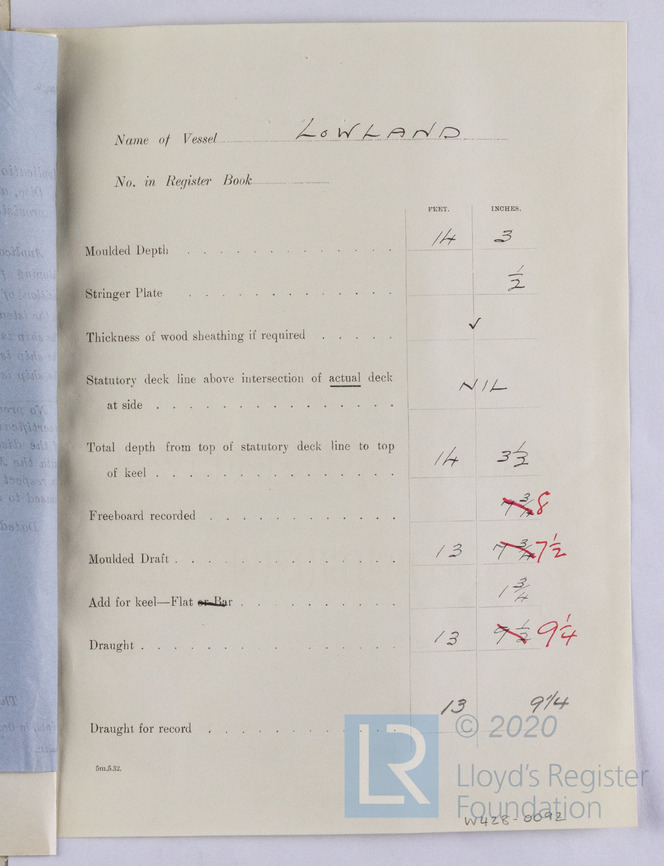 Name of Vessel LOWLAND
No. in Register Book
FEET. INCHES.
Moulded Depth 14 3
Stringer Plate 1/2
Thickness of wood sheathing if required ✓
Statutory deck line above intersection of actual deck
at side NIL
Total depth from top of statutory deck line to top
of keel 14 3 1/2
Freeboard recorded 7 3/4 8
Moulded Draft 13 7 3/4 7 1/2
Add for keel—Flat or Bar 1 3/4
Draught 13 9 1/2 9 1/4
Draught for record 13 9 1/4
5m.5.32.
LR
© 2020
Lloyd's Register
Foundation
W428-0092